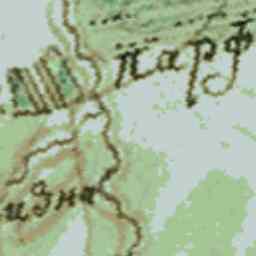 парф
идна